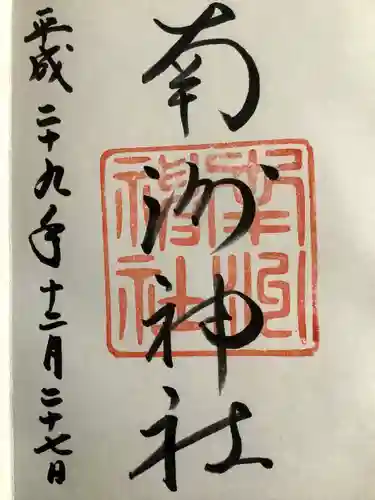 南洲神社
平成二十九年十二月二十七日
南洲神社